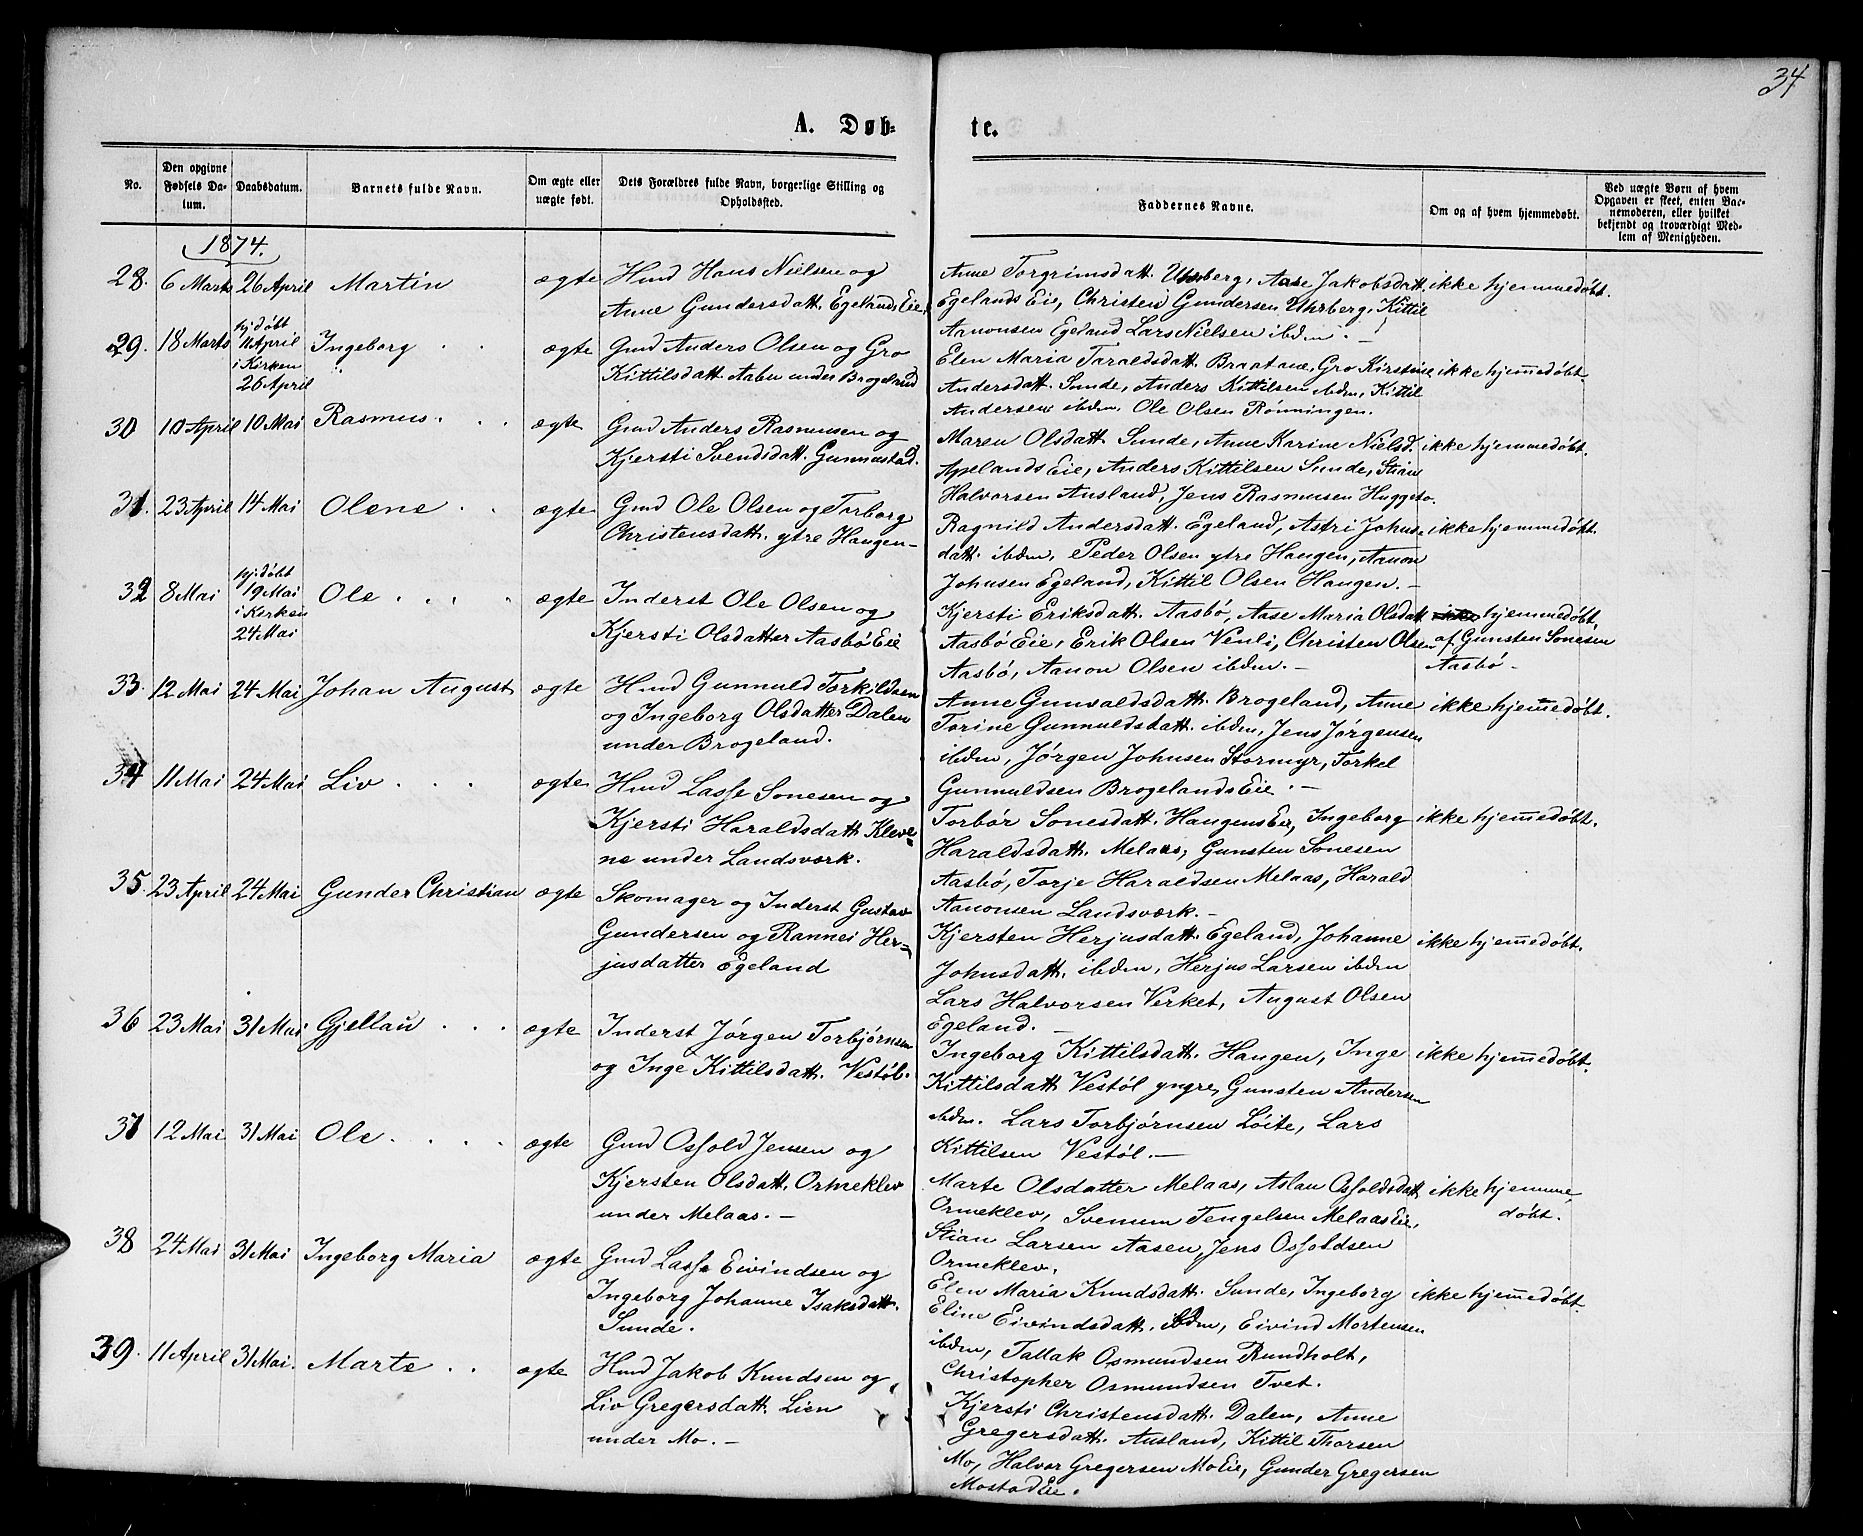 34
A. Døbte.
No.
Den opgivne Fødsels Datum.
Daabsdatum.
Barnets fulde Navn.
Om ægte eller uægte født.
Dets Forældres fulde Navn, borgerlige Stilling og Opholdssted.
Faddernes Navne.
Om og af hvem hjemmedøbt.
Ved uægte Børn af hvem Opgaven er skeet, enten Barnemoderen, eller hvilket bekjendt og troværdigt Medlem af Menigheden.
1874.
28. 6 Marts 26 April Martin ægte
Hmd Hans Nielsen og
Anne Gundersdatt. Egelands Eie
Anne Torgrimsdatt. Uhrberg, Aase Jakobsdatt.
Egelands Eie, Christen Gundersen Uhrberg, Kittil
Aanonsen Egeland Lars Nielsen ibdm. -
ikke hjemmedøbt.
29. 18 Marts hj.døbt
11 April
i Kirken
26 April
Ingeborg . . ægte
Gmd Anders Olsen og Gro
Kittilsdatt. Aabu under Brogeland
Elen Maria Taraldsdatt. Braatane, Gro Kirstine
Andersdatt. Sunde, Anders Kittilsen ibdm, Kittil
Andersen ibdm. Ole Olsen Rønningen.
ikke hjemmedøbt.
30 10 April 10 Mai Rasmus. . . ægte
Gmd Anders Rasmusen og
Kjersti Svendsdatt. Gunnestad.
Maren Olsdatt. Sunde, Anne Karine Nielsd.
Apelands Eie, Anders Kittilsen Sunde, Stian
Halvorsen Ausland, Jens Rasmusen Huggeto.
ikke hjemmedøbt.
31. 23 April 14 Mai Olene . . ægte
Gmd Ole Olsen og Torborg
Christensdatt. ytre Haugen-
Ragnild Andersdatt. Egeland, Astri Johns-
datt. ibdm, Peder Olsen ytre Haugen, Aanon
Johnsen Egeland, Kittil Olsen Haugen. -
ikke hjemmedøbt.
32 8 Mai hj.døbt
19 Mai
i Kirken
24 Mai
Ole . . . . ægte
Inderst Ole Olsen og
Kjersti Olsdatter Aasbø Eie
Kjersti Eriksdatt. Aasbø, Aase Maria Olsdatt
Aasbø Eie, Erik Olsen Venli, Christen Olsen
Aasbø, Aanon Olsen ibdm. -
ikke hjemmedøbt,
af Gunsten Sonesen
Aasbø -
33. 12 Mai 24 Mai Johan August ægte
Hmd Gunnuld Torkildsen
og Ingeborg Olsdatter Dalen
under Brogeland.
Anne Gunvaldsdatt. Brogeland, Anne
Torine Gunnuldsdatt. ibdm, Jens Jørgensen
ibdm, Jørgen Johnsen Stormyr, Torkel
Gunnuldsen Brogelands Eie. -
ikke hjemmedøbt.
34 11 Mai 24 Mai Liv . . . ægte
Hmd Lasse Sonesen og
Kjersti Haraldsdatt. Kleve-
ne under Landsværk.
Torbør Sonesdatt. Haugens Eie, Ingeborg
Haraldsdatt. Melaas, Gunsten Sonesen
Aasbø, Torje Haraldsen Melaas, Harald
Aanonsen Landsværk. -
ikke hjemmedøbt.
35. 23 April 24 Mai Gunder Christian ægte
Skomager og Inderst Gustav
Gundersen og Rannei Her-
jusdatter Egeland
Kjersten Herjusdatt. Egeland, Johanne
Johnsdatt. ibdm, Herjus Larsen ibdm
Lars Halvorsen Verket, August Olsen
Egeland. -
ikke hjemmedøbt.
36 23 Mai 31 Mai Gjellau . . . ægte
Inderst Jørgen Torbjørnsen
og Inge Kittilsdatt. Vestøl.
Ingeborg Kittilsdatt. Haugen, Inge
Kittilsdatt Vestøl yngre, Gunsten Andersen
ibdm. Lars Torbjørnsen Løite, Lars
Kittilsen Vestøl. -
ikke hjemmedøbt.
37 12 Mai 31 Mai Ole. . . . ægte
Gmd Osfold Jensen og
Kjersten Olsdatt. Ormeklev
under Melaas. -
Marte Olsdatter Melaas, Aslau Osfoldsdatt
Ormeklev, Svenum Tengelsen Melaas Eie,
Stian Larsen Aasen, Jens Osfoldsen
Ormeklev.
ikke hjemme,
døbt.
38 24 Mai 31 Mai Ingeborg Maria ægte
Gmd Lasse Eivindsen og
Ingeborg Johanne Isaksdatt.
Sunde.
Elen Maria Knudsdatt. Sunde, Ingeborg
Eline Eivindsdatt. ibdm, Eivind Mortensen
ibdm, Tallak Osmundsen Rundholt,
Christopher Osmundsen Tvet.
ikke hjemmedøbt.
39. 11 April 31 Mai. Marte . . ægte
Hmd Jakob Knudsen og
Liv Gregersdatt. Lien
under Mo. -
Kjersti Christensdatt. Dalen, Anne
Gregersdatt. Ausland, Kittil Thorsen
Mo, Halvor Gregersen Mo Eie, Gunder Gregersen
Mostad Eie.